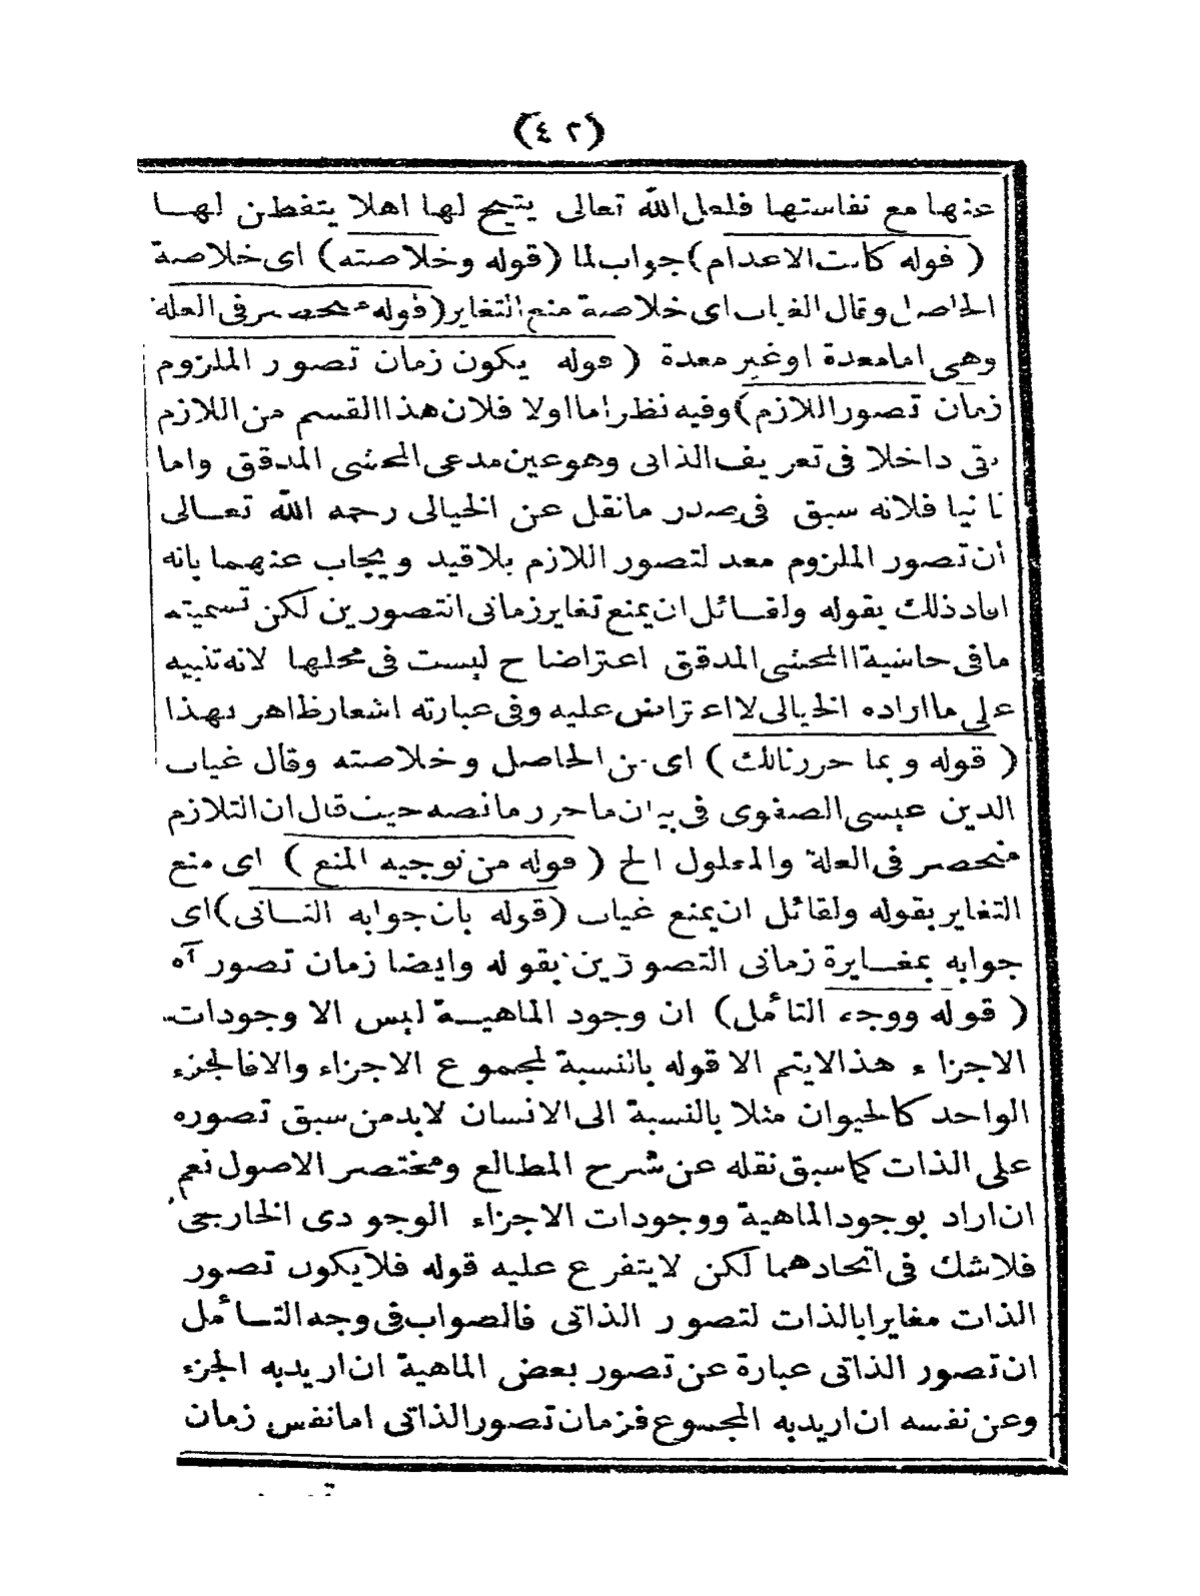 (٤٢)
عنها مع نفاستها فلعل الله تعالى يتيح لها اهلا يتفطن لهـا
(قوله كانت الاعدام) جواب لما (قوله وخلاصته) اى خلاصة
الحاصل وقال الغياب اى خلاصة منع التغاير (قوله منحصر فى العلة
وهى اما معدة او غير معدة (قوله يكون زمان تصور الملزوم
زمان تصور اللازم) وفيه نظر اما اولا فلان هذا القسم من اللازم
بقى داخلا فى تعريف الذاتى وهو عين مدعى المحشى المدقق واما
ثانيا فلانه سبق فى صدر ما نقل عن الخيالى رحمه الله تعـالى
أن تصور الملزوم معد لتصور اللازم بلا قيد ويجاب عنهما بانه
افاد ذلك بقوله ولقـائل ان يمنع تغاير زمانى التصورين لكن تسميته
ما فى حاشية المحشى المدقق اعتراضا ح ليست فى محلها لانه تنبيه
على ما اراده الخيالى لا اعتراض عليه وفى عبارته اشعار ظاهر بهذا
(قوله وبما حررنا لك) اى من الحاصل وخلاصته وقال غياب
الدين عيسى الصفوى فى بيان ما حرر ما نصه حيث قال ان التلازم
منحصر فى العلة والمعلول الخ (قوله من توجيه المنع) اى منع
التغاير بقوله ولقائل ان يمنع غياب (قوله بان جوابه الثـانى) اى
جوابه بمغـايرة زمانى التصورين بقوله وايضا زمان تصور آه
(قوله ووجه التأمل) ان وجود الماهيـة ليس الا وجودات
الاجزاء هذا لايتم الا قوله بالنسبة لمجموع الاجزاء والا فالجزء
الواحد كالحيوان مثلا بالنسبة الى الانسان لابد من سبق تصوره
على الذات كما سبق نقله عن شرح المطالع ومختصر الاصول نعم
ان اراد بوجود الماهية ووجودات الاجزاء الوجودى الخارجى
فلاشك فى اتحادهما لكن لايتفرع عليه قوله فلايكون تصور
الذات مغايرا بالذات لتصور الذاتى فالصواب فى وجه التـأمل
ان تصور الذاتى عبارة عن تصور بعض الماهية ان اريد به الجزء
وعن نفسه ان اريد به المجموع فزمان تصور الذاتى اما نفس زمان